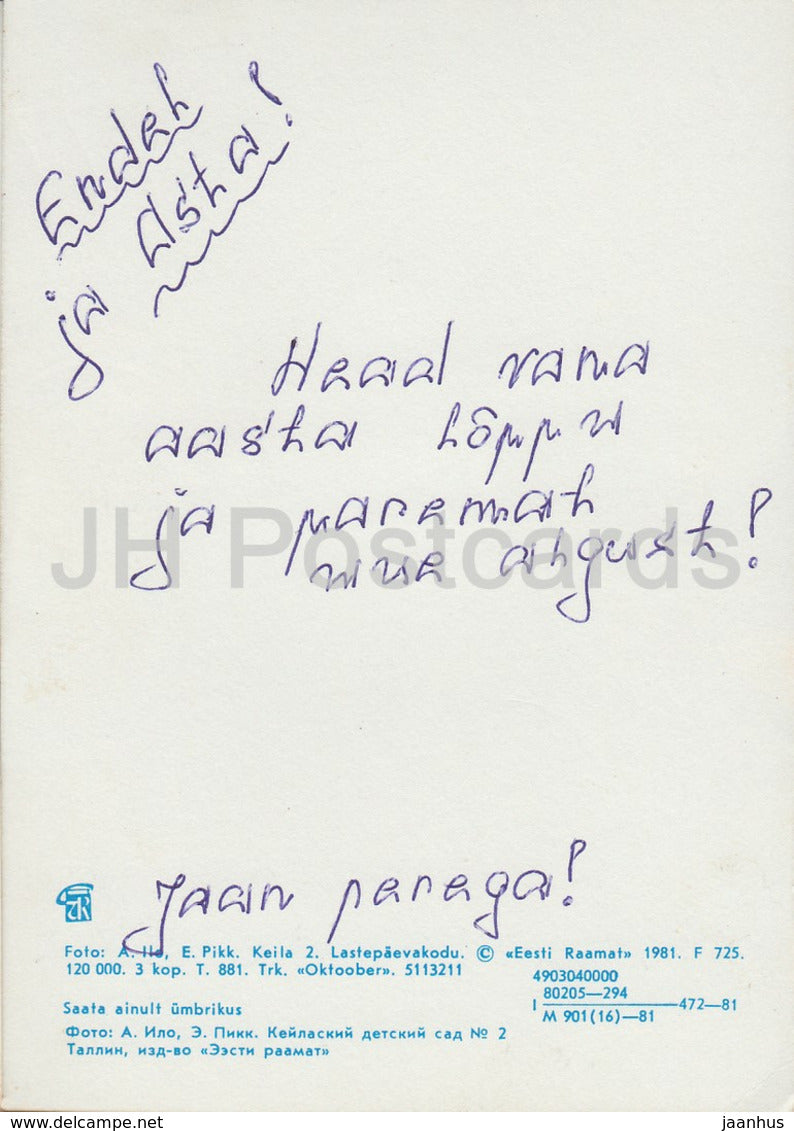 Endel
ja Asta!
Head vana
aasta lõppu
ja paremat
uue algust!
JH Postcards
Jaan perega!
Foto: A. Ilo, E. Pikk. Keila 2. Lastepäevakodu. © «Eesti Raamat» 1981. F 725.
120 000. 3 kop. T. 881. Trk. «Oktoober». 5113211
4903040000
80205—294
I —472—81
M 901(16)—81
Saata ainult ümbrikus
Фото: А. Ило, Э. Пикк. Кейлаский детский сад № 2
Таллин, изд-во «Ээсти раамат»
www.delcampe.net
jaanhus